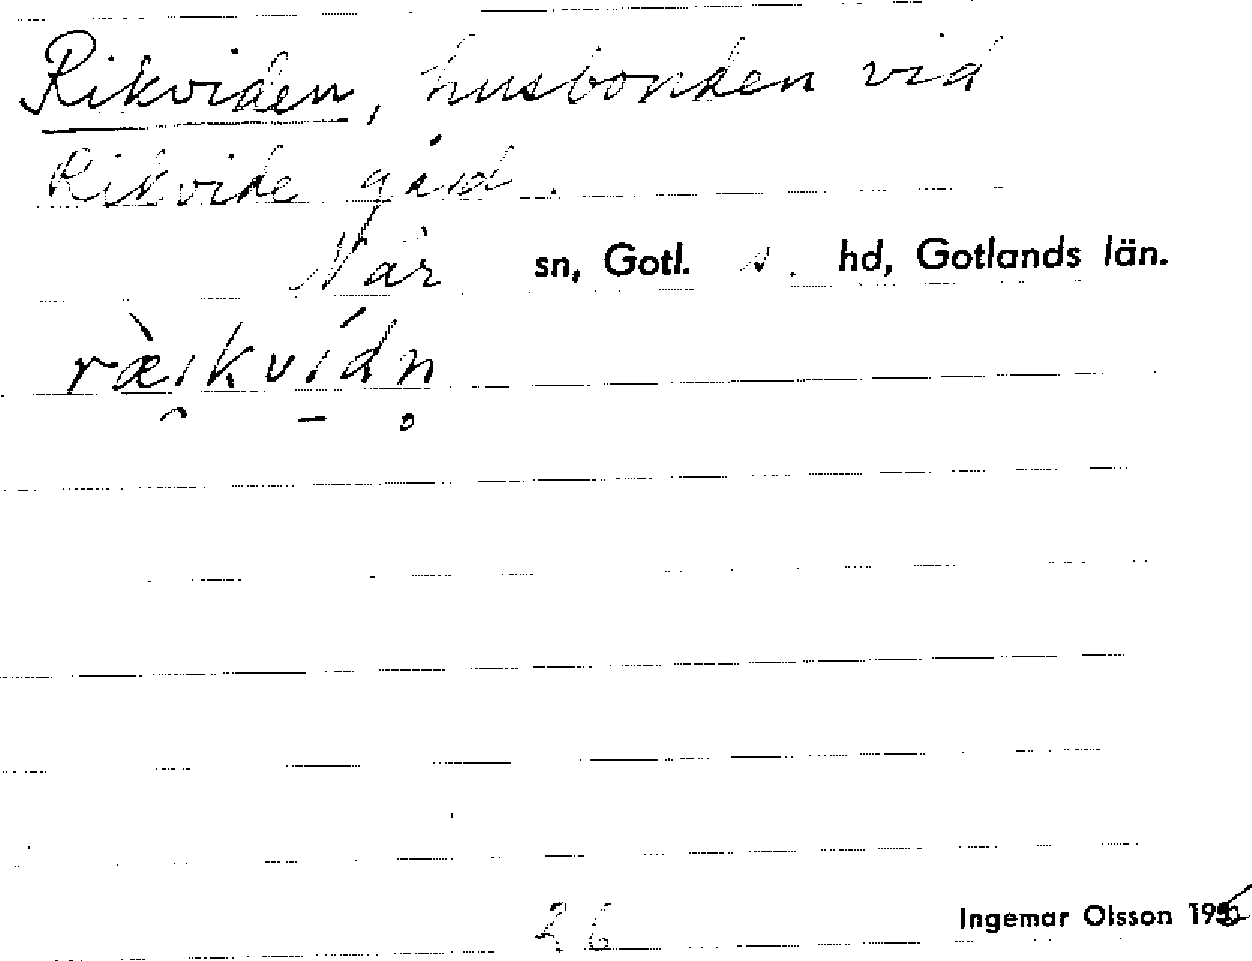 Rikviden, husbonden vid
Rikvide gård.
När sn, Gotl. s. hd, Gotlands län.
ræ̀ıkvídn̥
26
Ingemar Olsson 195